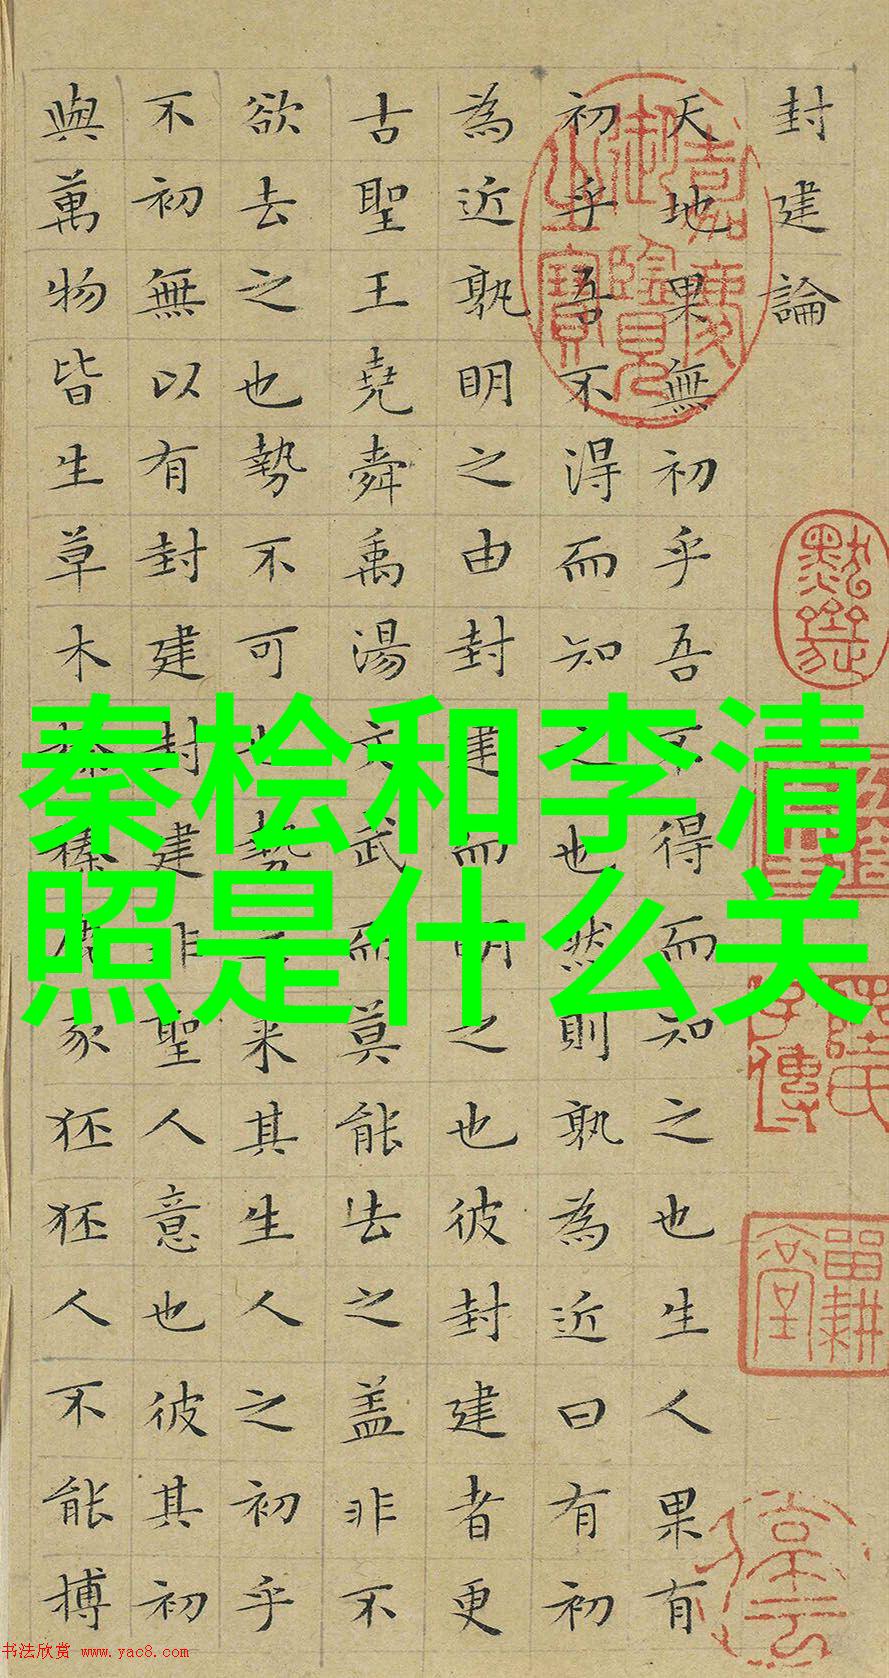 封建論
天地果無初乎吾不得而知之也生人果有
初乎吾不得而知之也然則孰為近曰有初
為近孰明之由封建而明之也彼封建者更
古聖王堯舜禹湯文武而莫能去之蓋非不
欲去之也勢不可也勢之来其生人之初乎
不初無以有封建封建非聖人意也彼其初
與萬物皆生草木榛榛鹿豕狉狉人不能搏
秦桧和李清
照是什么关
嘉慶御覽之寶
书法欣赏 www.yac8.com